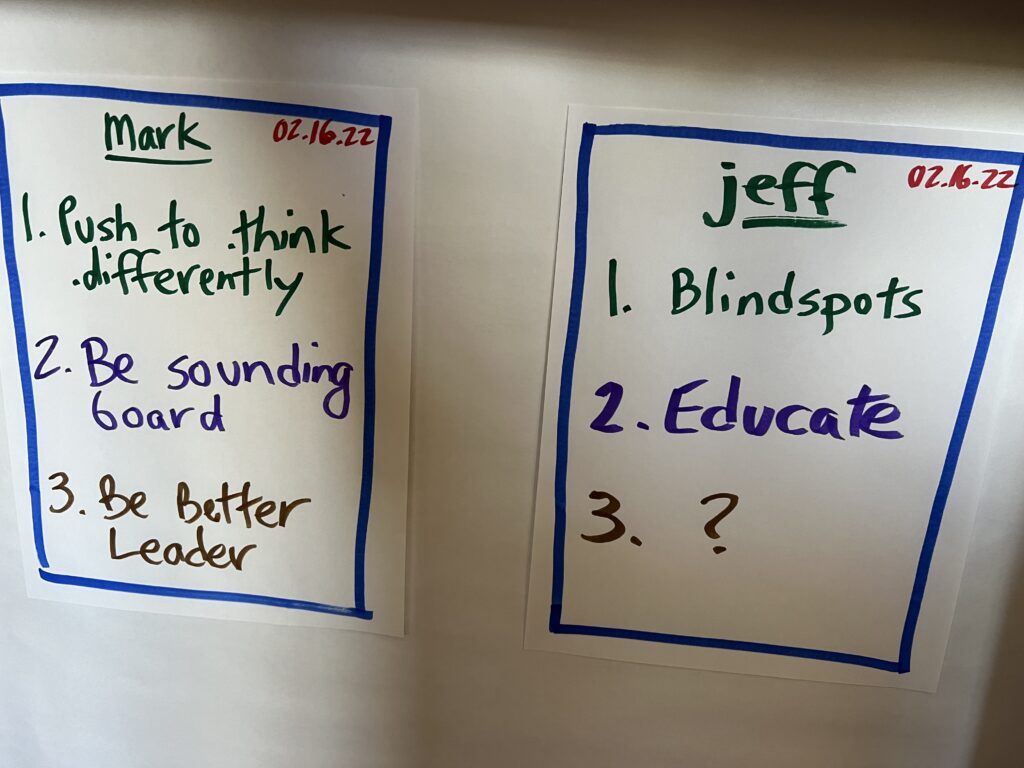 Mark 02.16.22
1. Push to think
differently
2. Be sounding
board
3. Be Better
Leader
jeff 02.16.22
1. Blindspots
2. Educate
3. ?